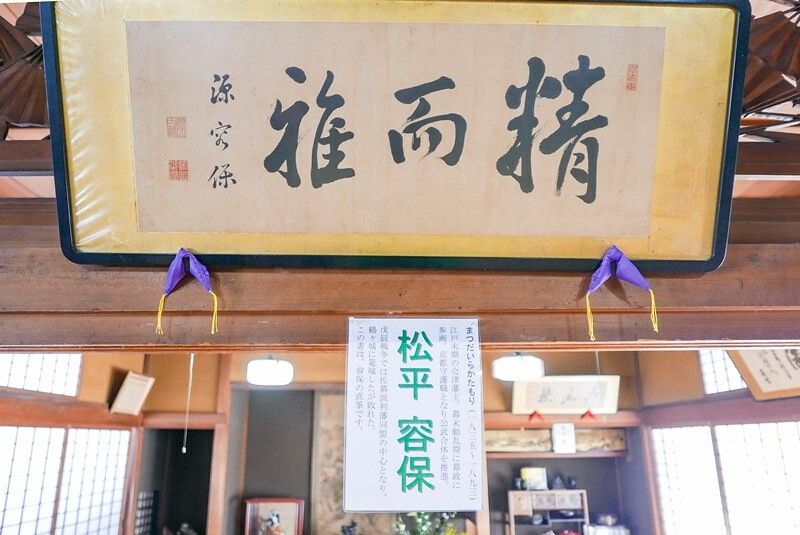 精而雅
源容保
まつだいらかたもり（一八三五〜一八九三）
江戸末期の会津藩主。幕末動乱期に幕政に
参画、京都守護職となり公武合体を推進。
松平 容保
戊辰戦争では佐幕派列藩同盟の中心となり、
鶴ヶ城に籠城したが敗れた。
この書は、容保の直筆です。